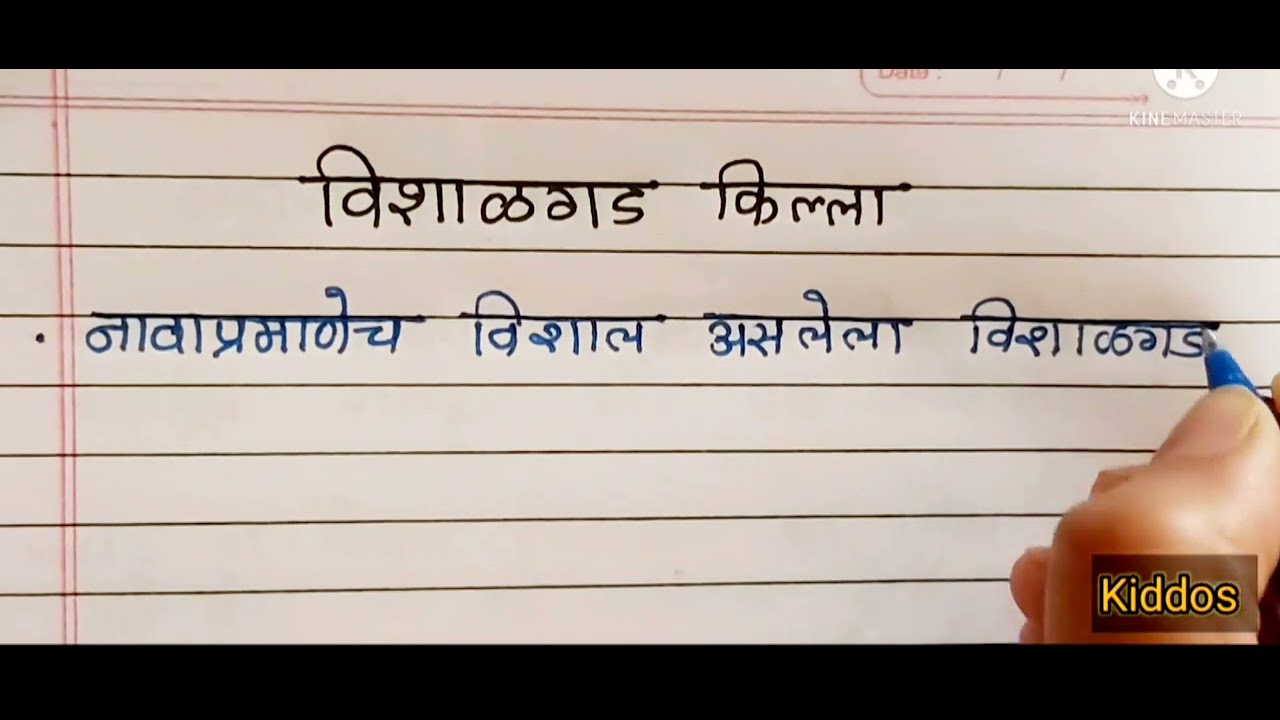 Date : / /
KINEMASTER
विशाळगड किल्ला
. नावाप्रमाणेच विशाल असलेला विशाळगड
Kiddos